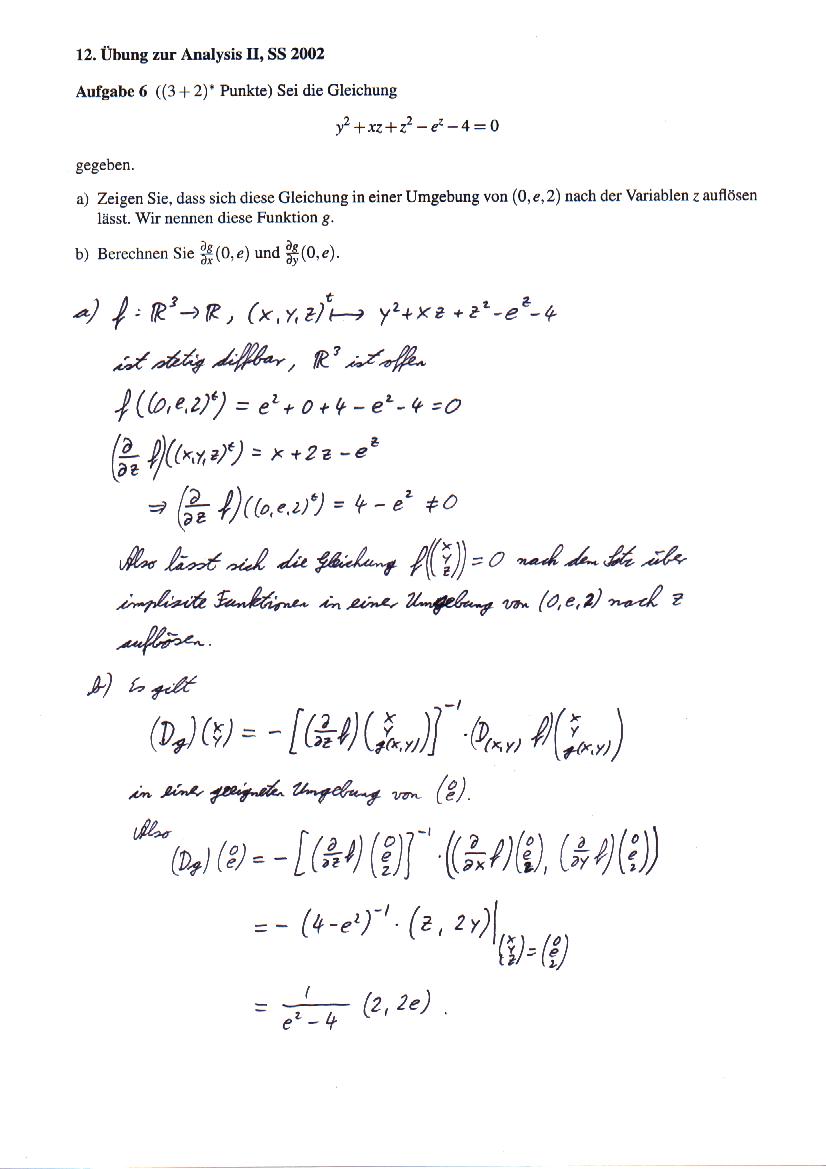 12. Übung zur Analysis II, SS 2002
Aufgabe 6 ((3 + 2)* Punkte) Sei die Gleichung
y² + xz + z² − eᶻ − 4 = 0
gegeben.
a) Zeigen Sie, dass sich diese Gleichung in einer Umgebung von (0, e, 2) nach der Variablen z auflösen
lässt. Wir nennen diese Funktion g.
b) Berechnen Sie ∂g/∂x (0, e) und ∂g/∂y (0, e).
a) f : ℝ³ → ℝ, (x, y, z)ᵗ ↦ y² + xz + z² − eᶻ − 4
ist stetig diffbar, ℝ³ ist offen
f((0, e, 2)ᵗ) = e² + 0 + 4 − e² − 4 = 0
(∂/∂z f)((x, y, z)ᵗ) = x + 2z − eᶻ
⇒ (∂/∂z f)((0, e, 2)ᵗ) = 4 − e² ≠ 0
Also lässt sich die Gleichung f((x y z)) = 0 nach dem Satz über
implizite Funktionen in einer Umgebung von (0, e, 2) nach z
auflösen.
b) Es gilt
(Dg)(x y) = − [(∂/∂z f)(x y g(x,y))]⁻¹ · (D(x,y) f)(x y g(x,y))
in einer geeigneten Umgebung von (0 e).
Also
(Dg)(0 e) = − [(∂/∂z f)(0 e 2)]⁻¹ · ((∂/∂x f)(0 e 2), (∂/∂y f)(0 e 2))
= − (4 − e²)⁻¹ · (z, 2y)|(x y z) = (0 e 2)
= 1/(e² − 4) (2, 2e) .